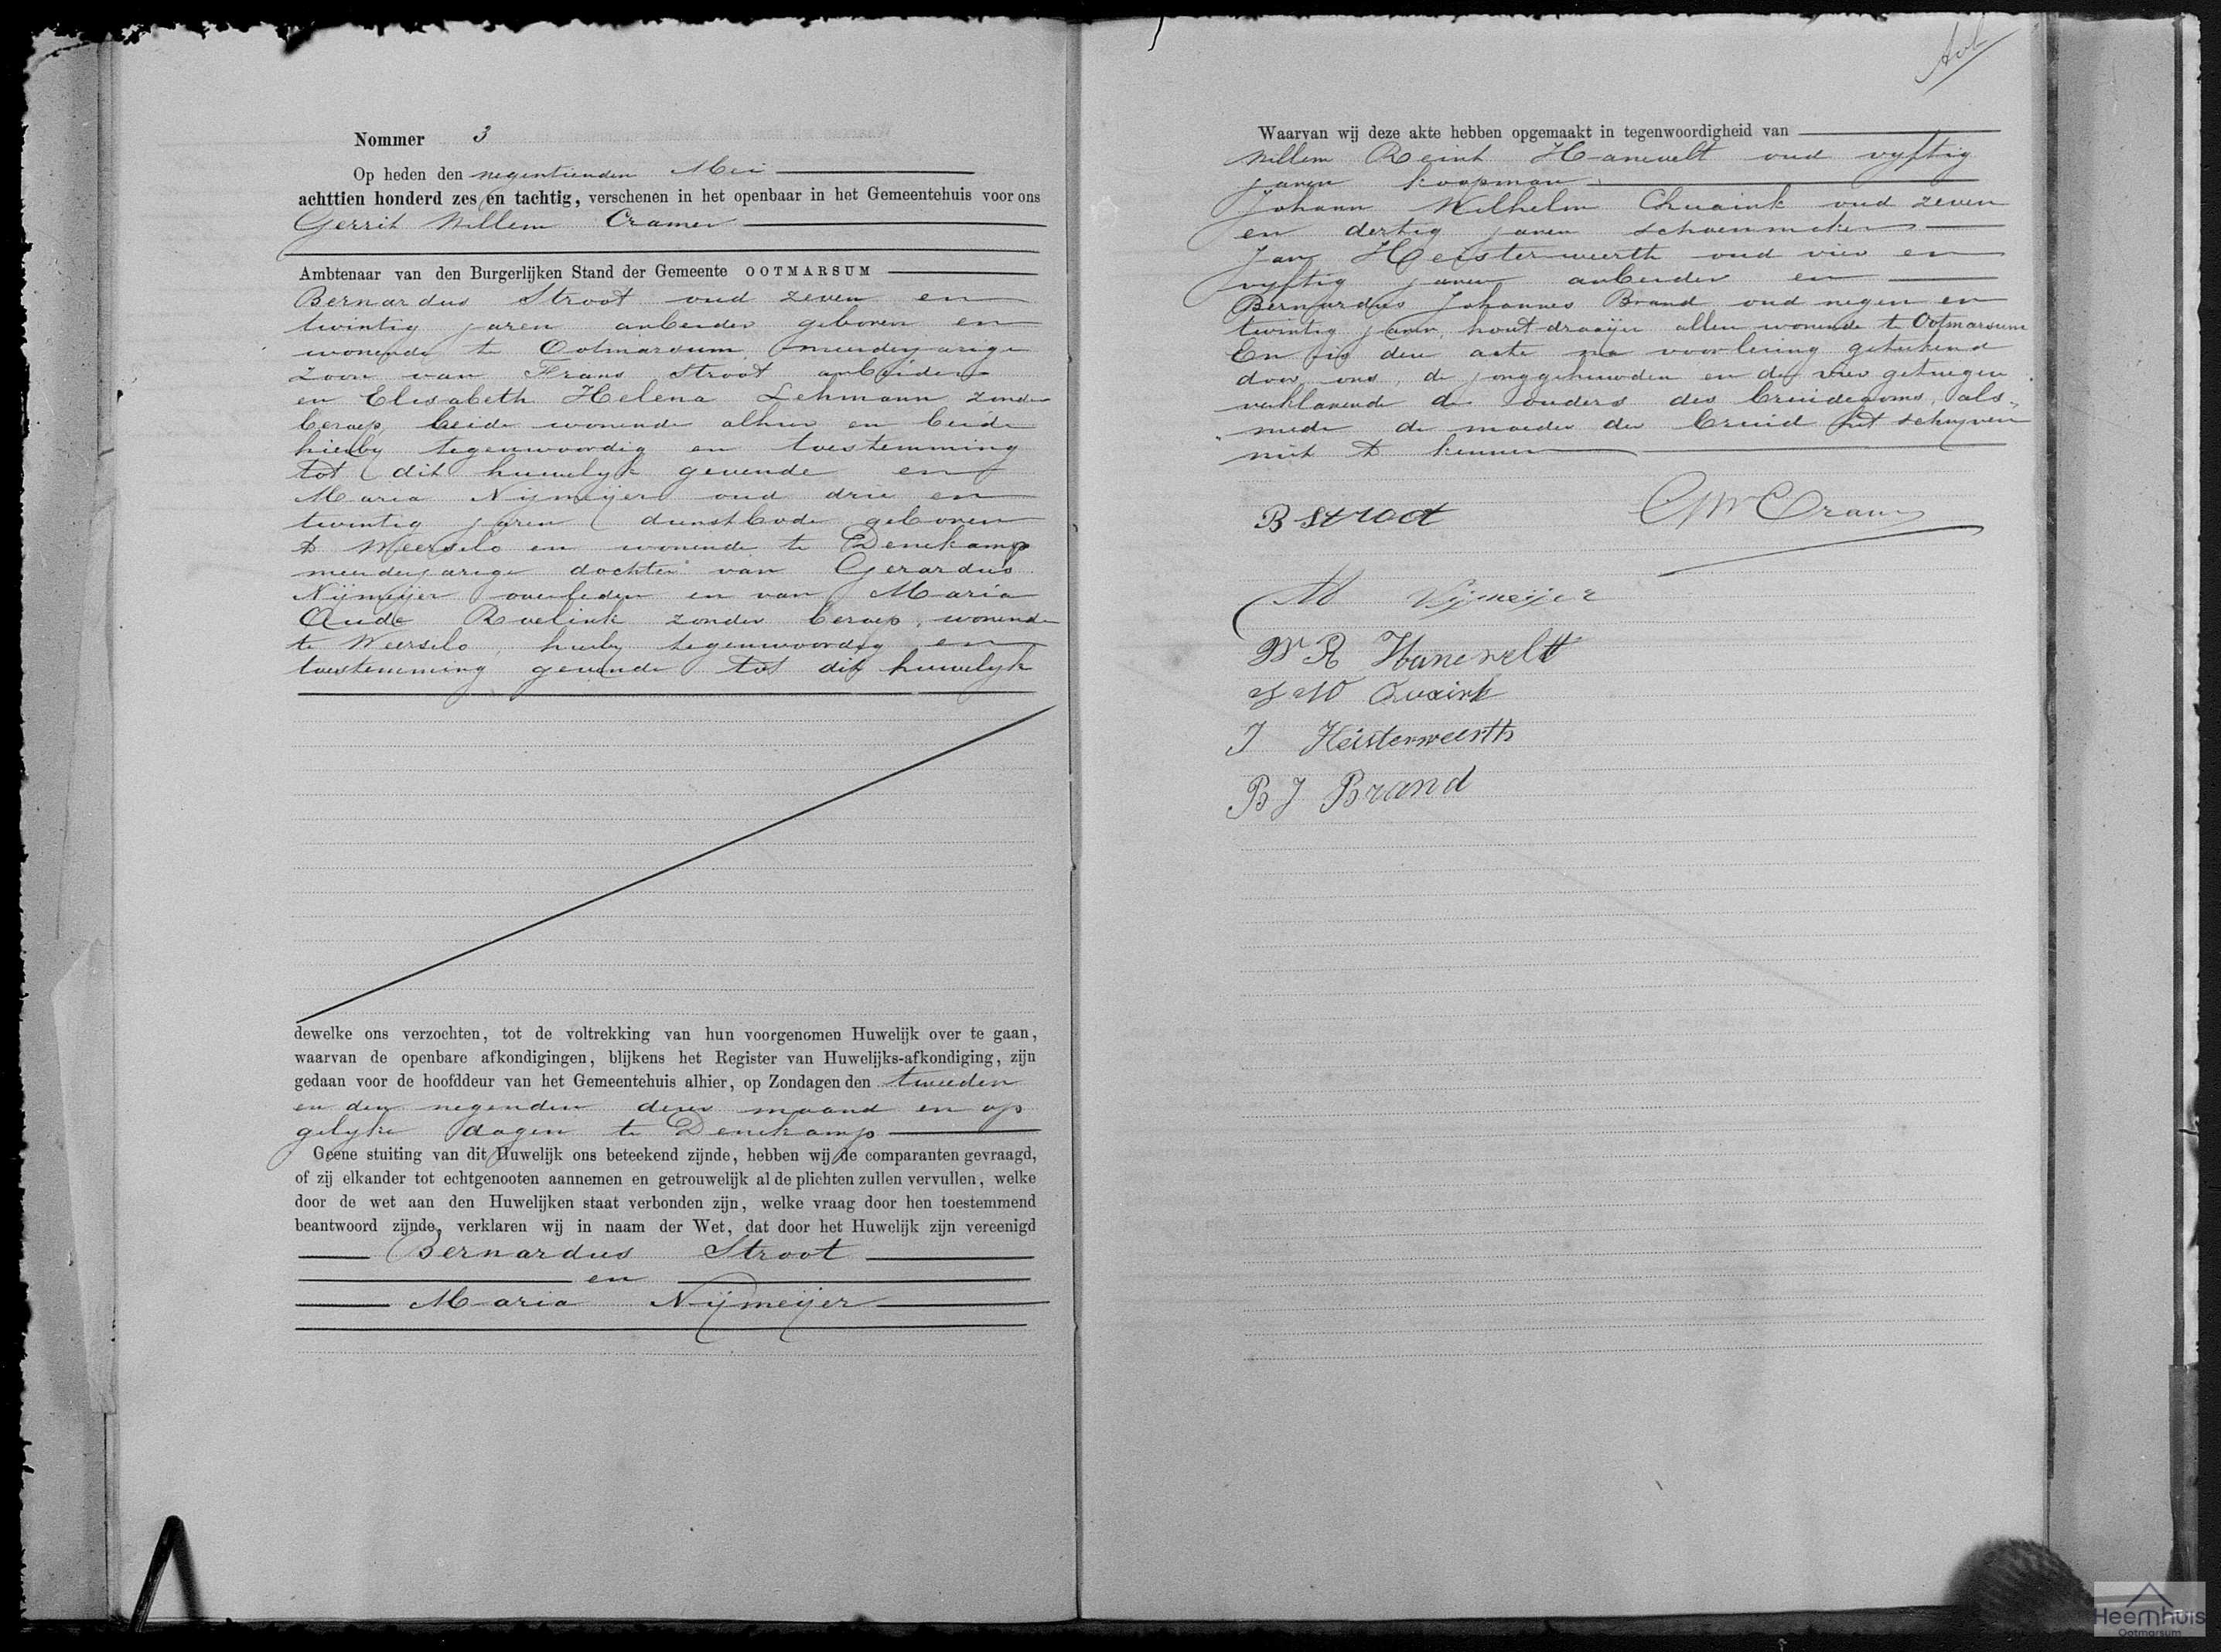 Nommer 3
Op heden den negentienden Mei
achttien honderd zes en tachtig, verschenen in het openbaar in het Gemeentehuis voor ons
Gerrit Willem Cramer
Ambtenaar van den Burgerlijken Stand der Gemeente OOTMARSUM
Bernardus Stroot oud zeven en
twintig jaren arbeider geboren en
wonende te Ootmarsum meerderjarige
zoon van Frans Stroot arbeider
en Elisabeth Helena Lehmann zonder
beroep, beide wonende alhier en beide
hierby tegenwoordig en toestemming
tot dit huwelyk gevende en
Maria Nijmeijer oud drie en
twintig jaren dienstbode geboren
te Weerselo en wonende te Denekamp
meerderjarige dochter van Gerardus
Nijmeijer overleden en van Maria
Oude Roelink zonder beroep, wonende
te Weerselo, hierby tegenwoordig en
toestemming gevende tot dit huwelyk
dewelke ons verzochten, tot de voltrekking van hun voorgenomen Huwelijk over te gaan,
waarvan de openbare afkondigingen, blijkens het Register van Huwelijks-afkondiging, zijn
gedaan voor de hoofddeur van het Gemeentehuis alhier, op Zondagen den tweeden
en den negenden dezer maand en op
gelyke dagen te Denekamp
Geene stuiting van dit Huwelijk ons beteekend zijnde, hebben wij de comparanten gevraagd,
of zij elkander tot echtgenooten aannemen en getrouwelijk al de plichten zullen vervullen, welke
door de wet aan den Huwelijken staat verbonden zijn, welke vraag door hen toestemmend
beantwoord zijnde, verklaren wij in naam der Wet, dat door het Huwelijk zijn vereenigd
Bernardus Stroot
en
Maria Nijmeijer
Waarvan wij deze akte hebben opgemaakt in tegenwoordigheid van
Willem Reint Hanevelt oud vyftig
jaren koopman
Johann Wilhelm Quaink oud zeven
en dertig jaren schoenmaker
Jan Heisterweerth oud vier en
vyftig jaren arbeider en
Bernardus Johannes Brand oud negen en
twintig jaren, houtdraaijer allen wonende te Ootmarsum
En is deze acte na voorlezing geteekend
door ons, de jonggehuwden en de vier getuigen
verklarende de ouders des bruidegoms, als-
mede de moeder der bruid het schryven
niet te kennen
B Stroot
GW Cramer
M Nijmeijer
W R Hanevelt
J W Quaink
J Heisterweerth
B J Brand
Heemhuis
Ootmarsum